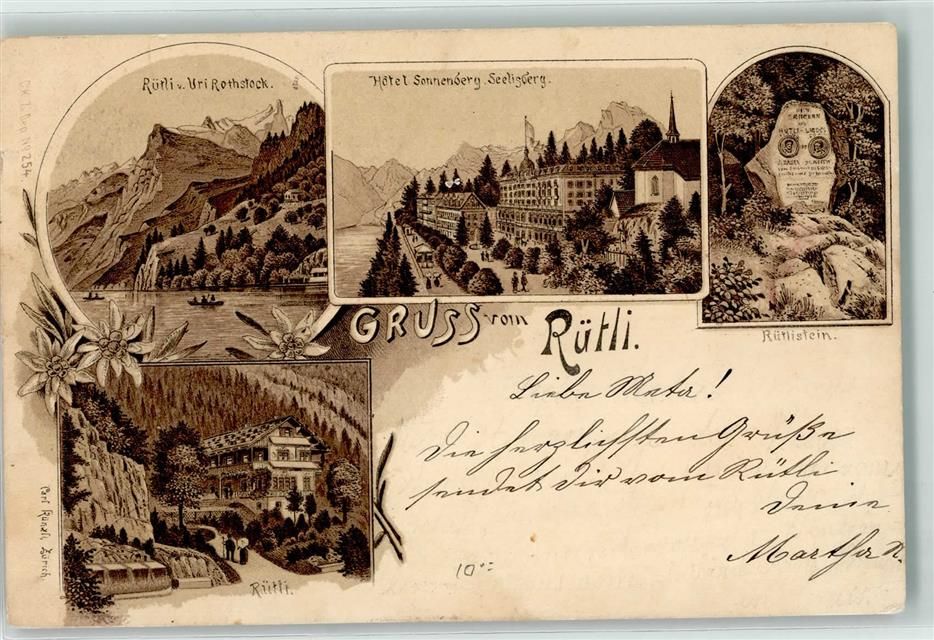 Rütli v. Uri Rothstock.
Hôtel Sonnenberg. Seelisberg.
Rütlistein.
GRUSS vom Rütli.
Liebe Meta!
Die herzlichsten Grüße
sendet Dir vom Rütli
Deine
Martha R.
Rütli.
Carl Künzli, Zürich.
10.=